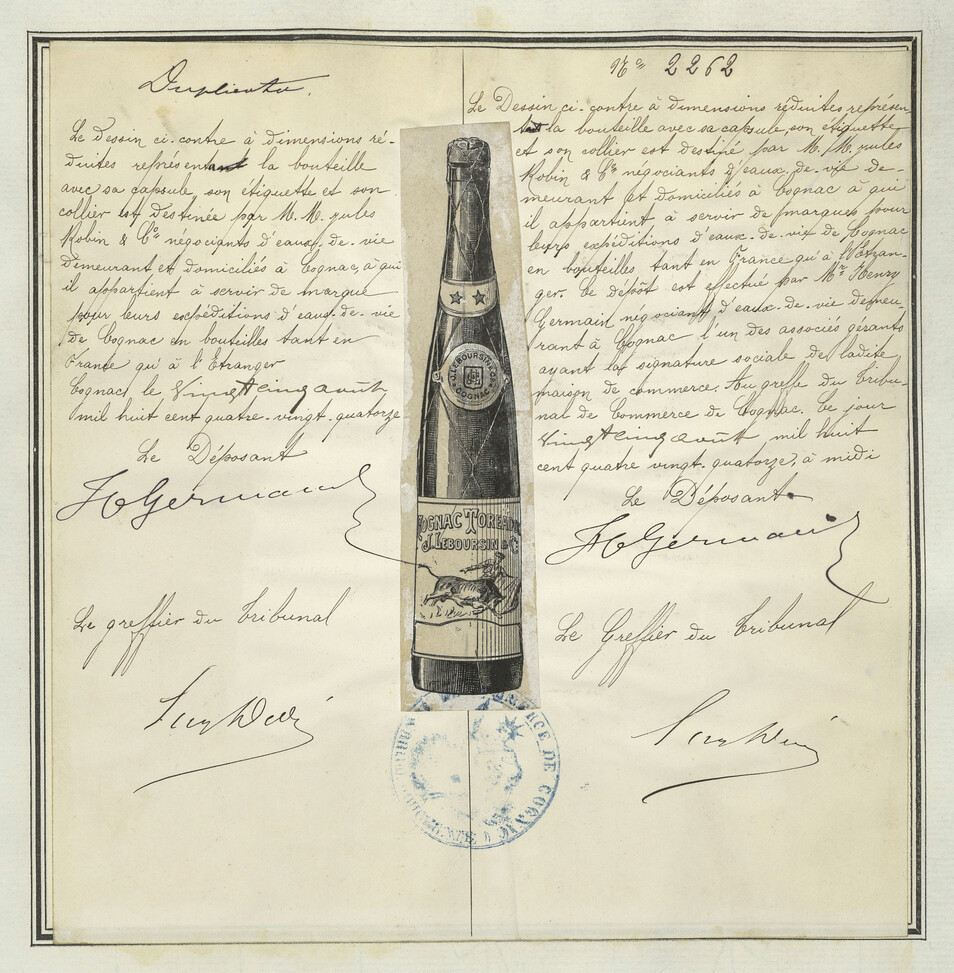 Duplicata.
Le dessin ci-contre à dimensions ré-
duites représentant la bouteille
avec sa capsule son étiquette et son
collier est destinée par M. M. Jules
Robin & Cie négociants d'eaux-de-vie
demeurant et domiciliés à Cognac, à qui
il appartient à servir de marque
pour leurs expéditions d'eaux-de-vie
de Cognac en bouteilles tant en
France qu'à l'Etranger
Cognac, le Vingt cinq août
mil huit cent quatre-vingt-quatorze
Le Déposant
H Germain
Le greffier du Tribunal
No 2262
Le Dessin ci-contre à dimensions réduites représen-
tant la bouteille avec sa capsule, son étiquette
et son collier est destiné par M. M. Jules
Robin & Cie négociants d'eaux-de-vie de-
meurant et domiciliés à Cognac à qui
il appartient à servir de marque pour
leurs expéditions d'eaux-de-vie de Cognac
en bouteilles tant en France qu'à l'Etran-
ger. Ce dépôt est effectué par Mr Henry
Germain négociant d'eaux-de-vie demeu
rant à Cognac l'un des associés gérants
ayant la signature sociale de ladite
maison de commerce. Au greffe du Tribu-
nal de Commerce de Cognac. Ce jour
Vingt cinq août, mil huit
cent quatre vingt-quatorze, à midi
Le Déposant
H Germain
Le Greffier du Tribunal
J. LEBOURSIN & Co
COGNAC
COGNAC TOREADOR
J. LEBOURSIN & C
DE COGNAC